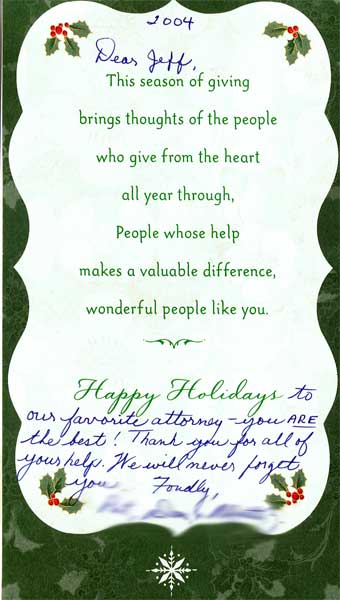 2004
Dear Jeff,
This season of giving
brings thoughts of the people
who give from the heart
all year through,
People whose help
makes a valuable difference,
wonderful people like you.
Happy Holidays to
our favorite attorney - you ARE
the best! Thank you for all of
your help. We will never forget
you Fondly,